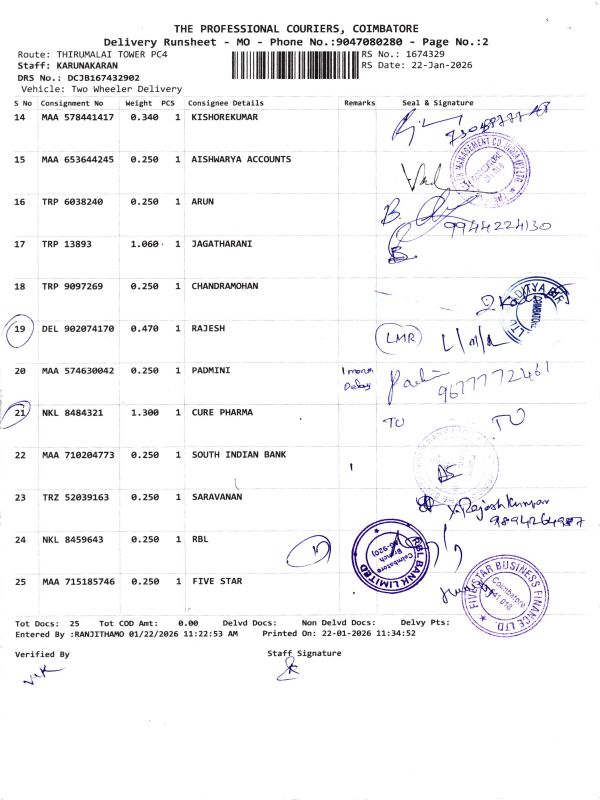 THE PROFESSIONAL COURIERS, COIMBATORE
Delivery Runsheet - MO - Phone No.:9047080280 - Page No.:2
Route: THIRUMALAI TOWER PC4
RS No.: 1674329
Staff: KARUNAKARAN
RS Date: 22-Jan-2026
DRS No.: DCJB167432902
Vehicle: Two Wheeler Delivery
S No Consignment No Weight PCS Consignee Details Remarks Seal & Signature
14 MAA 578441417 0.340 1 KISHOREKUMAR
15 MAA 653644245 0.250 1 AISHWARYA ACCOUNTS
16 TRP 6038240 0.250 1 ARUN
9944224130
17 TRP 13893 1.060 1 JAGATHARANI
18 TRP 9097269 0.250 1 CHANDRAMOHAN
19 DEL 902074170 0.470 1 RAJESH LMR
20 MAA 574630042 0.250 1 PADMINI
9677772461
21 NKL 8484321 1.300 1 CURE PHARMA TO TO
22 MAA 710204773 0.250 1 SOUTH INDIAN BANK
23 TRZ 52039163 0.250 1 SARAVANAN Rajesh Kumar
24 NKL 8459643 0.250 1 RBL RBL BANK LIMITED Coimbatore Branch
25 MAA 715185746 0.250 1 FIVE STAR FIVE STAR BUSINESS FINANCE LTD. Coimbatore
Tot Docs: 25 Tot COD Amt: 0.00 Delvd Docs: Non Delvd Docs: Delvy Pts:
Entered By :RANJITHAMO 01/22/2026 11:22:53 AM Printed On: 22-01-2026 11:34:52
Verified By Staff Signature